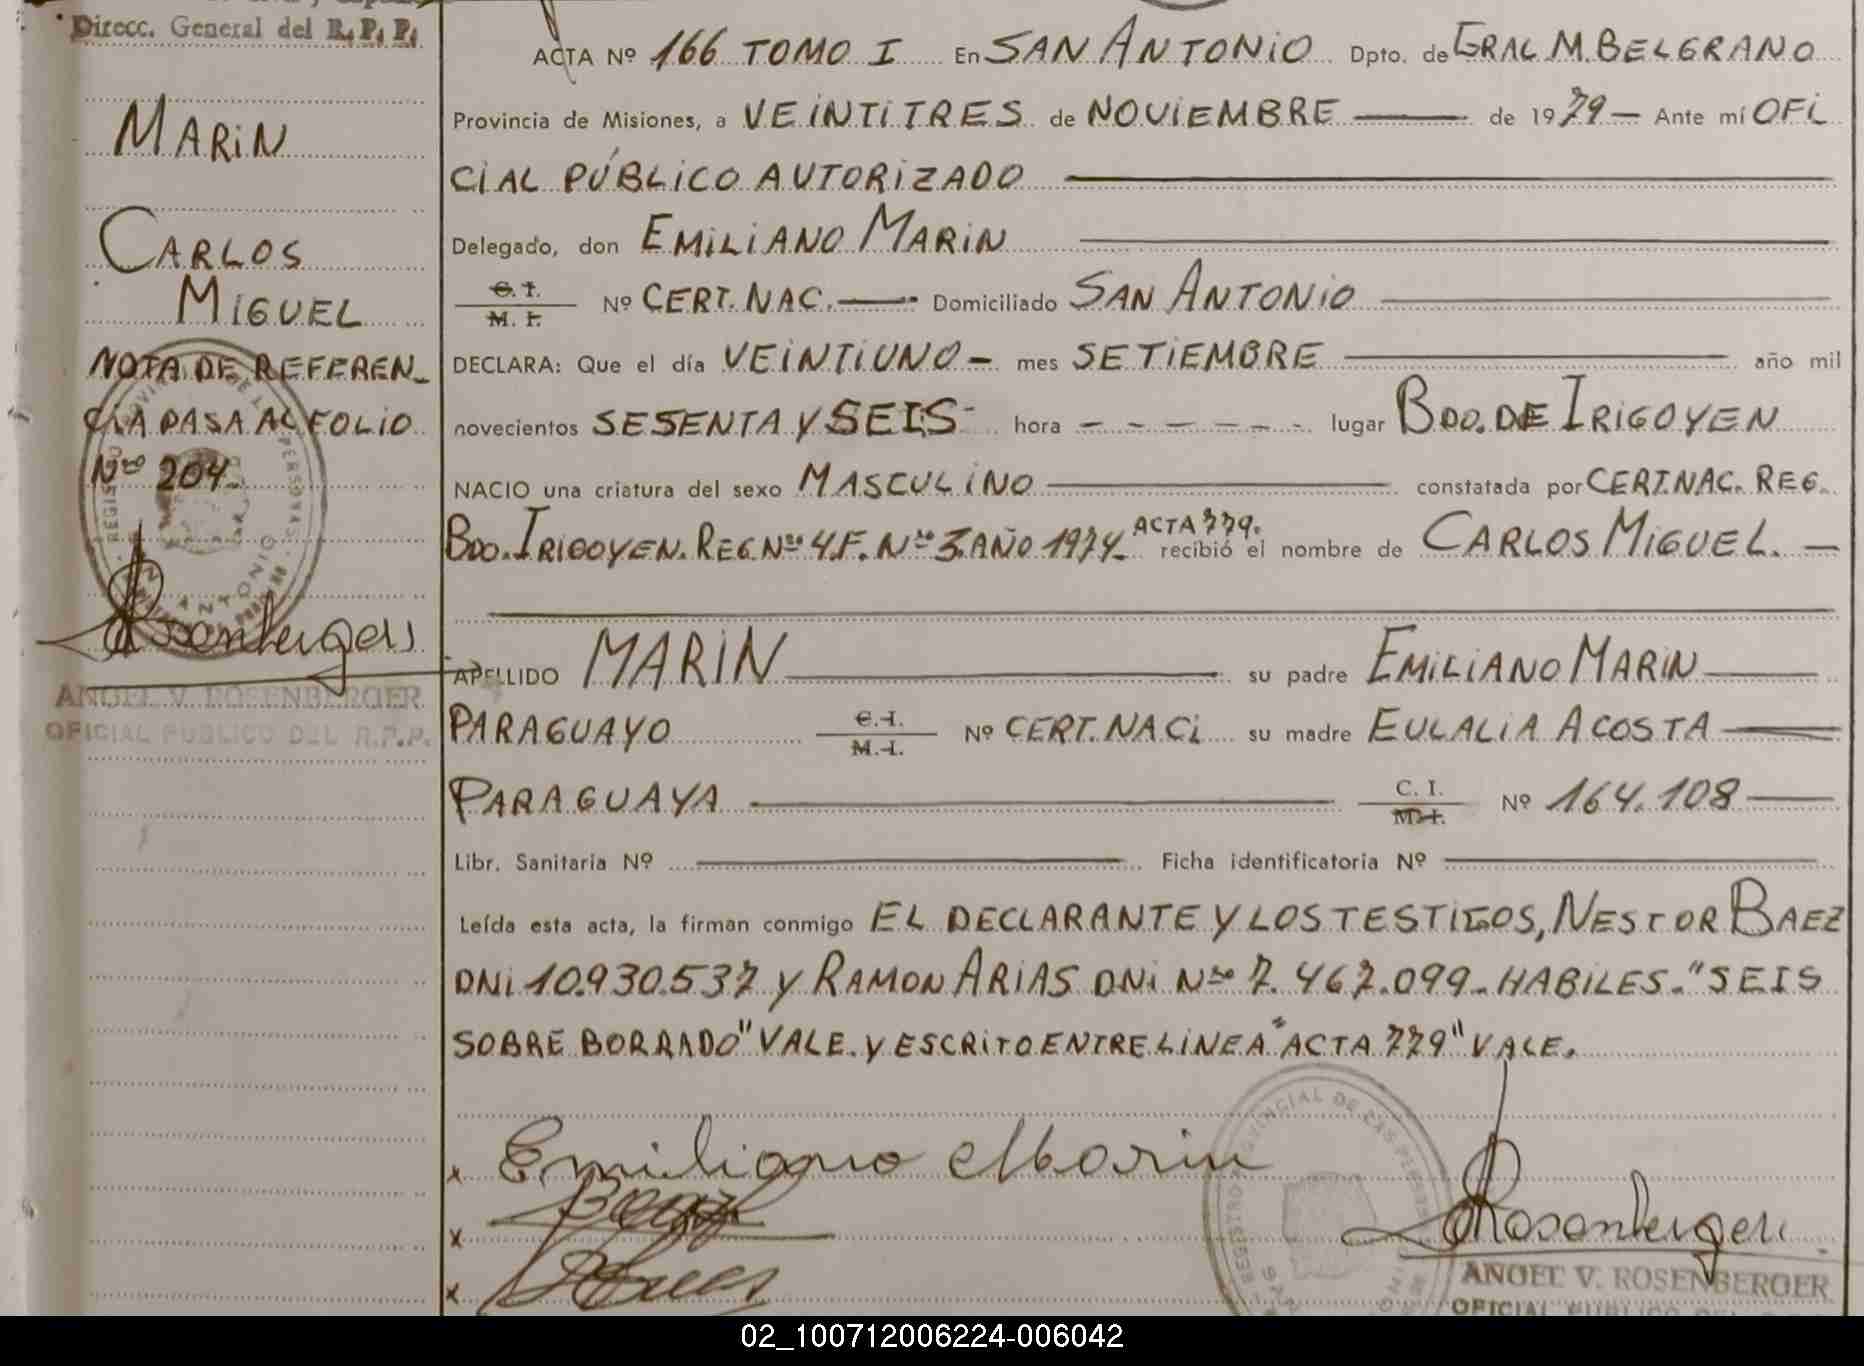 Direcc. General del R.P.P.
MARIN
CARLOS
MIGUEL
NOTA DE REFEREN_
CIA PASA AL FOLIO
Nro 204.
ANGEL V. ROSENBERGER
OFICIAL PUBLICO DEL R.P.P.
ACTA Nº 166 TOMO I En SAN ANTONIO Dpto. de GRAL M. BELGRANO
Provincia de Misiones, a VEINTITRES de NOVIEMBRE de 1979 — Ante mí OFI
CIAL PÚBLICO AUTORIZADO
Delegado, don EMILIANO MARIN
C. I. M. I. Nº CERT. NAC. Domiciliado SAN ANTONIO
DECLARA: Que el día VEINTIUNO — mes SETIEMBRE año mil
novecientos SESENTA Y SEIS - hora - - - - - - lugar BDO. DE IRIGOYEN
NACIO una criatura del sexo MASCULINO constatada por CERT. NAC. REG.
BDO. IRIGOYEN. REG. Nro 4. F. Nro 3. AÑO 1974 ACTA 779. recibió el nombre de CARLOS MIGUEL. —
APELLIDO MARIN su padre EMILIANO MARIN
PARAGUAYO C. I. M. I. Nº CERT. NACI su madre EULALIA ACOSTA
PARAGUAYA C. I. M. I. Nº 164.108
Libr. Sanitaria Nº Ficha identificatoria Nº
Leída esta acta, la firman conmigo EL DECLARANTE Y LOS TESTIGOS, NESTOR BAEZ
DNI 10.930.537 Y RAMON ARIAS DNI Nro 7.467.099. HABILES. "SEIS
SOBRE BORRADO" VALE. Y ESCRITO ENTRE LINEA "ACTA 779" VALE.
x Emiliano Marin
x
x
Rosenberger
ANGEL V. ROSENBERGER
02_100712006224-006042